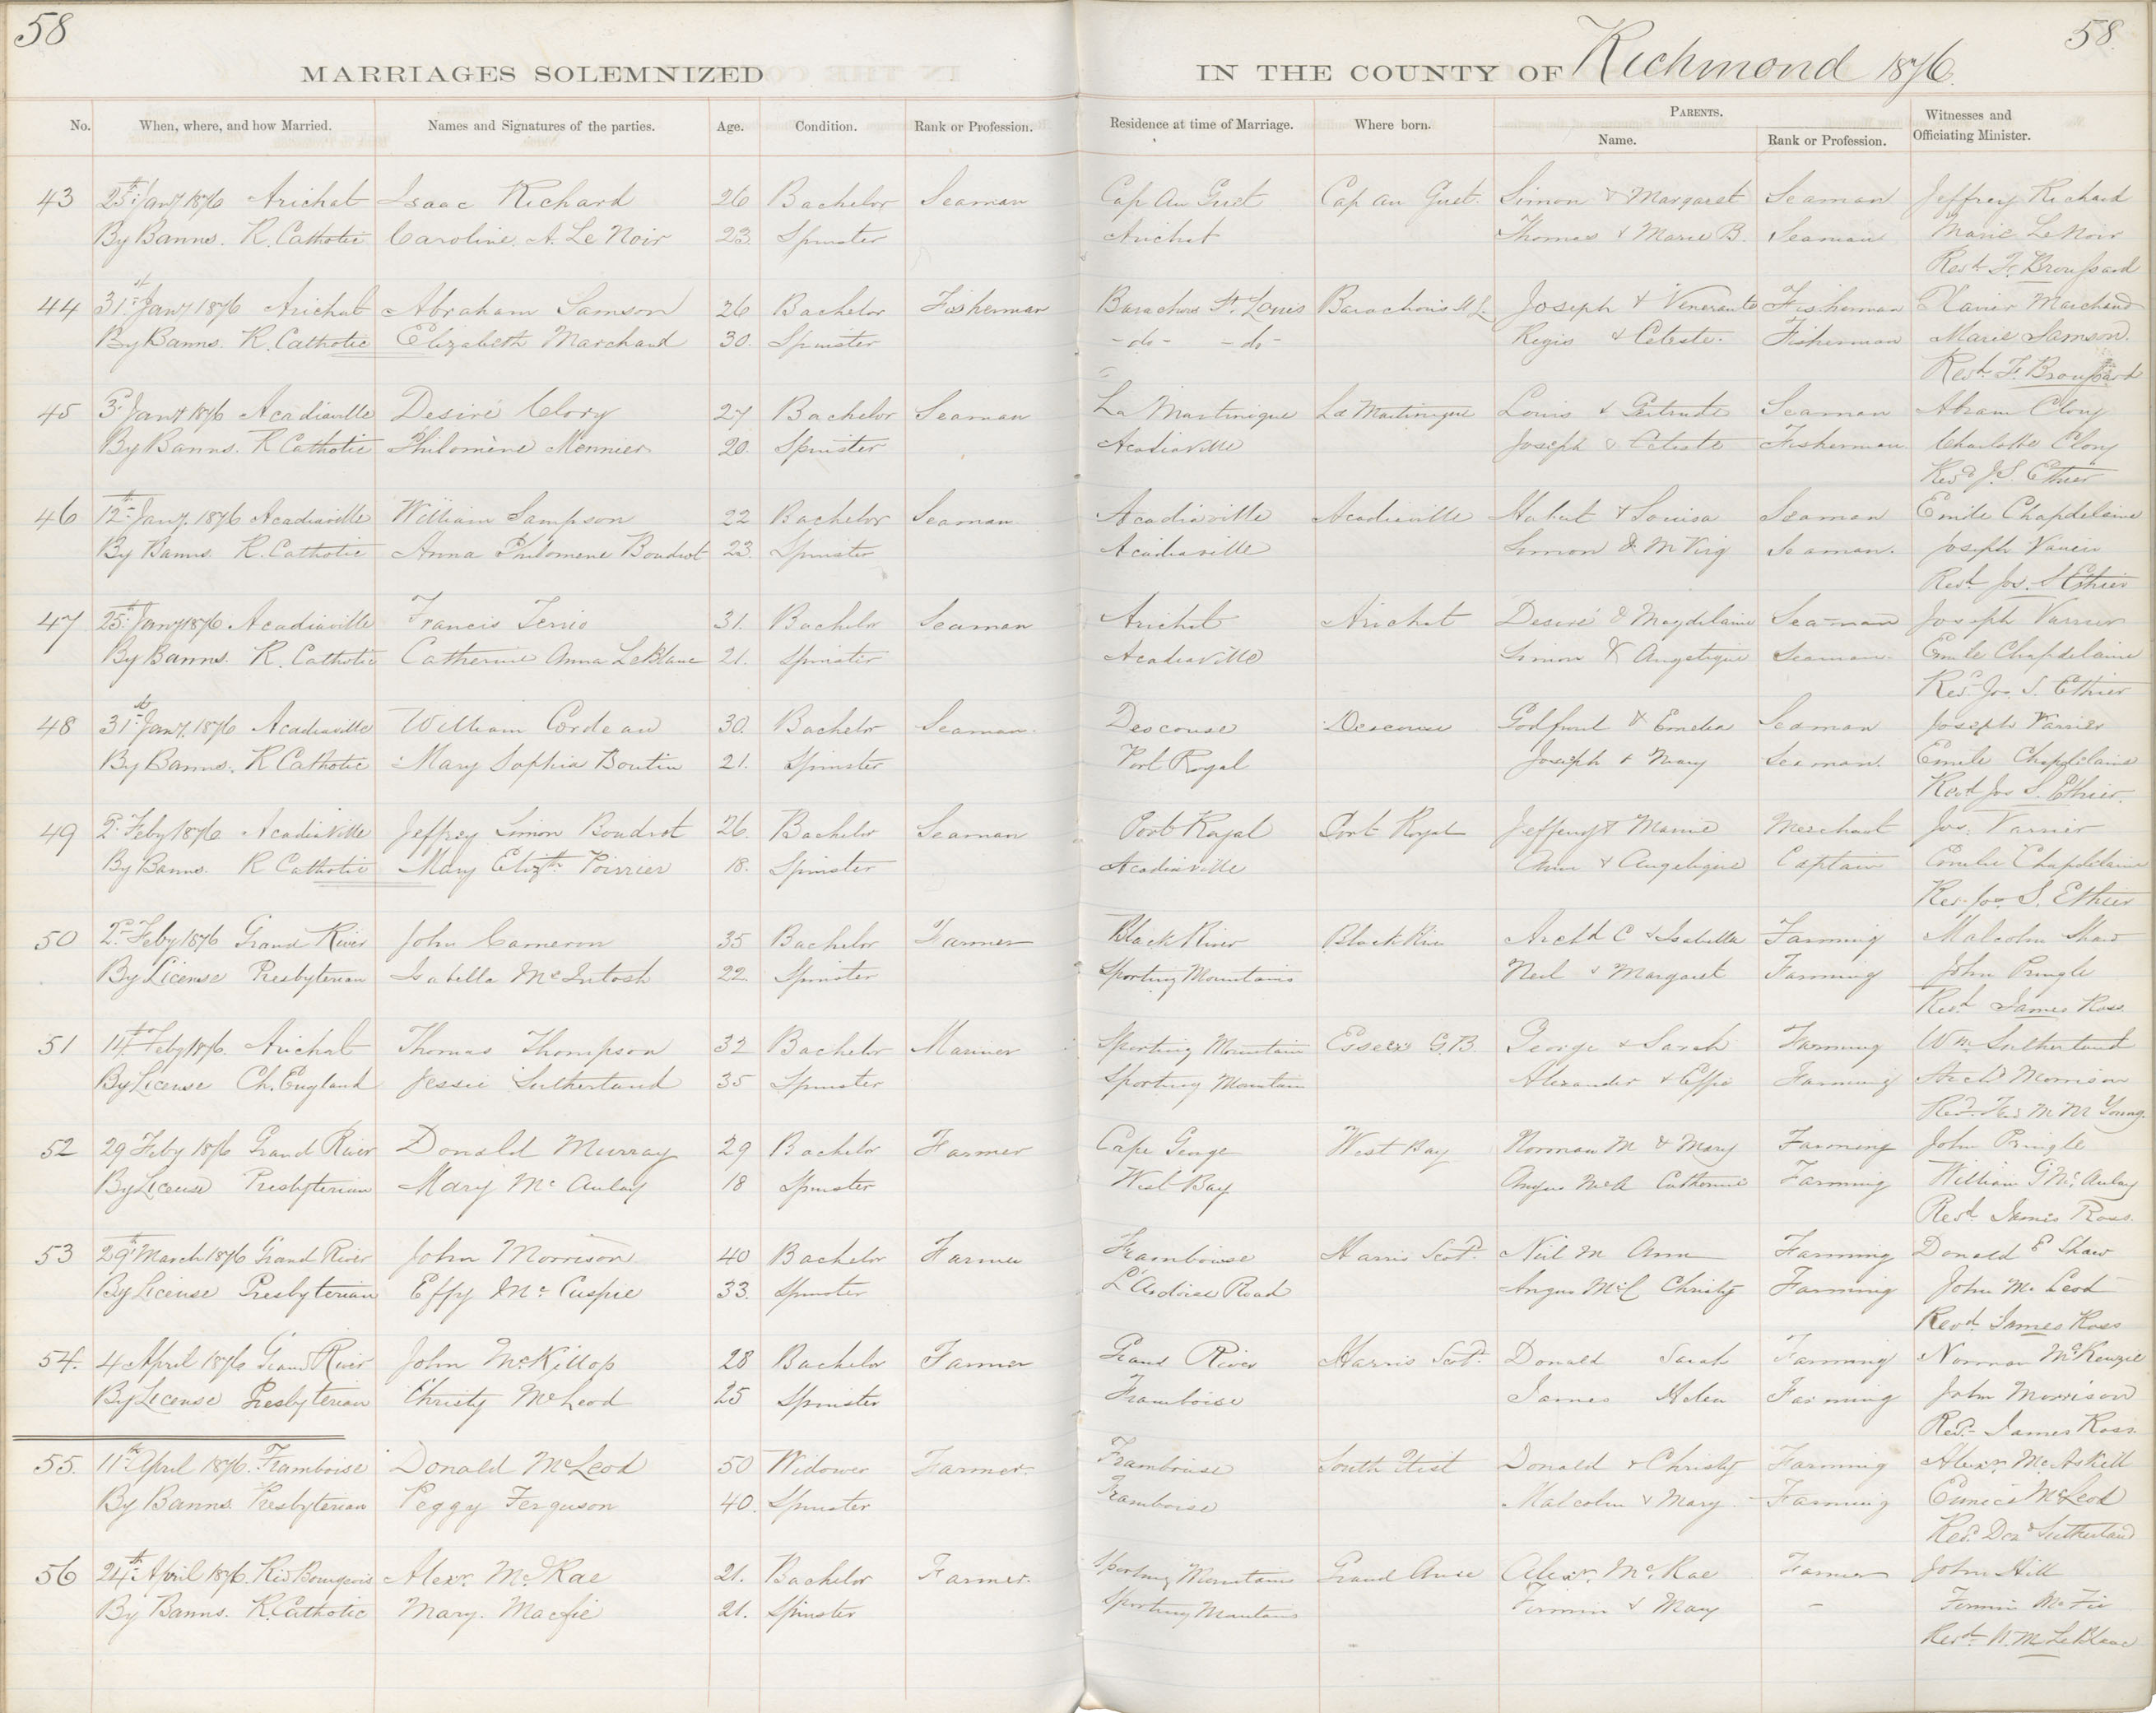 58
58.
MARRIAGES SOLEMNIZED IN THE COUNTY OF Richmond 1876.
No. When, where, and how Married. Names and Signatures of the parties. Age. Condition. Rank or Profession. Residence at time of Marriage. Where born. PARENTS. Name. Rank or Profession. Witnesses and Officiating Minister.
43 25th Jany 1876 Arichat Isaac Richard 26 Bachelor Seaman Cap Au Guet Cap au Guet. Simon & Margaret Seaman Jeffrey Richard
By Banns. R. Catholic Caroline A. Le Noir 23. Spinster Arichat Thomas & Marie B. Seaman Marie LeNoir
Revd F. Broussard
44 31st Jany 1876 Arichat Abraham Samson 26 Bachelor Fisherman Barachois St. Louis Barachois St L. Joseph & Venerante Fisherman Xavier Marchand
By Banns. R. Catholic Elizabeth Marchand 30. Spinster -do- -do- Regis & Celeste. Fisherman Marie Samson.
Revd. F. Broussard
45 3d Jany 1876 Acadiaville Desiré Clory 27 Bachelor Seaman La Martinique La Martinique Louis & Gertrude Seaman Abram Clory
By Banns. R Catholic Philomène Monnier 20. Spinster Acadiaville Joseph & Celeste Fisherman. Charlotte Clory
Revd J. S. Ethier
46 12th Jany. 1876 Acadiaville William Sampson 22 Bachelor Seaman. Acadiaville Acadiaville Hubert & Louisa Seaman Emile Chapdelaine
By Banns. R. Catholic Anna Philomene Boudrot 23. Spinster Acadiaville Simon & M Virg Seaman. Joseph
Revd Jos. S Ethier
47 25th Jany 1876 Acadiaville Francis Terrio 31. Bachelor Seaman Arichat Arichat Desiré & Magdelaine Seaman Joseph Varrier
By Banns. R. Catholic Catherine Anna LeBlanc 21. Spinster Acadiaville Simon & Angelique Seaman. Emile Chapdelaine
Revd Jos. S. Ethier
48 31st Jany. 1876 Acadiaville William Cordeau 30. Bachelor Seaman. Descouse Descouse & Emelia Seaman Joseph Varrier
By Banns. R Catholic Mary Sophia Boutin 21. Spinster Port Royal Joseph & Mary Seaman. Emile Chapdelaine
Revd Jos S. Ethier.
49 2d Feby 1876 Acadiaville Jeffrey Simon Boudrot 26. Bachelor Seaman Port Royal Port Royal Jeffrey & Marie Merchant Jos. Varrier
By Banns. R Catholic Mary Elizth. Poirrier 18. Spinster Acadiaville & Angelique Captain Emelie Chapdelaine
Rev. Jos. S. Ethier
50 2d Feby 1876 Grand River John Cameron 35 Bachelor Farmer Black River Black River Archd C & Isabella Farming Malcolm Shaw
By License Presbyterian Isabella McIntosh 22. Spinster Sporting Mountains Neil & Margaret Farming John Pringle
Revd James Ross
51 11th Feby 1876. Arichat Thomas Thompson 32 Bachelor Mariner Sporting Mountain Essex G.B. George & Sarah Farming Wm. Sutherland
By License Ch. England Jessie Sutherland 35 Spinster Sporting Mountain Alexander & Effie Farming Archd Morrison
Revd M M Young.
52 29 Feby 1876 Grand River Donald Murray 29 Bachelor Farmer Cape George West Bay Norman M & Mary Farming John Pringle
By License Presbyterian Mary McAulay 18 Spinster West Bay Angus McA Catherine Farming William G McAulay
Revd. James Ross.
53 29th March 1876 Grand River John Morrison 40 Bachelor Farmer Framboise Harris Scotd. Neil M Ann Farming Donald E Shaw
By License Presbyterian Effy McCuspie 33. Spinster L'Ardoise Road Angus McC Christy Farming John McLeod
Revd. James Ross
54. 4 April 1876 Grand River John McKillop 28 Bachelor Farmer Grand River Harris Scotd. Donald Sarah Farming Norman McKenzie
By License Presbyterian Christy McLeod 25 Spinster Framboise James Helen Farming John Morrison
Revd. James Ross.
55. 11th April 1876. Framboise Donald McLeod 50 Widower Farmer. Framboise South Uist Donald & Christy Farming Alexr. McAskill
By Banns. Presbyterian Peggy Ferguson 40. Spinster Framboise Malcolm & Mary Farming Eunice McLeod
Revd. Dond Sutherland
56 24th April 1876. Riv Bourgeois Alexr. McRae 21. Bachelor Farmer. Sporting Mountains Grand Anse Alexr. McRae Farmer John Hill
By Banns. R. Catholic Mary. Macfie 21. Spinster Sporting Mountains Firmin & Mary - Firmin McFie
Revd. W. M LeBlanc